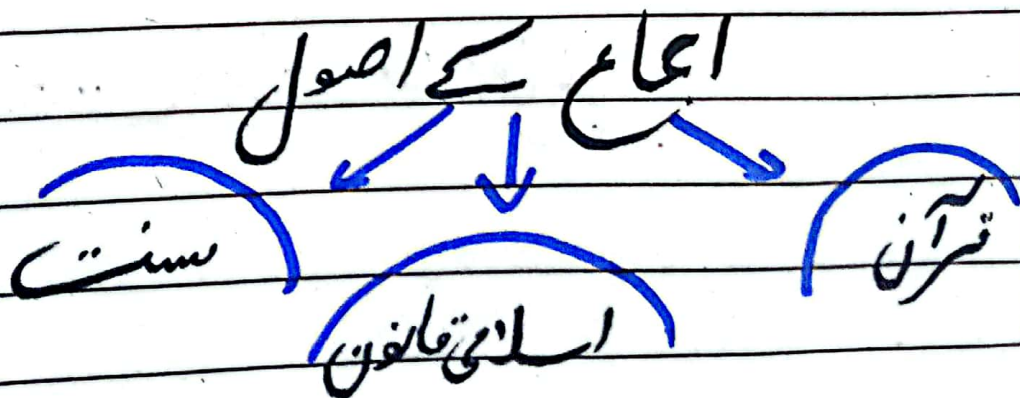 اجماع کے اصول
قرآن
اسلامی قانون
سنت